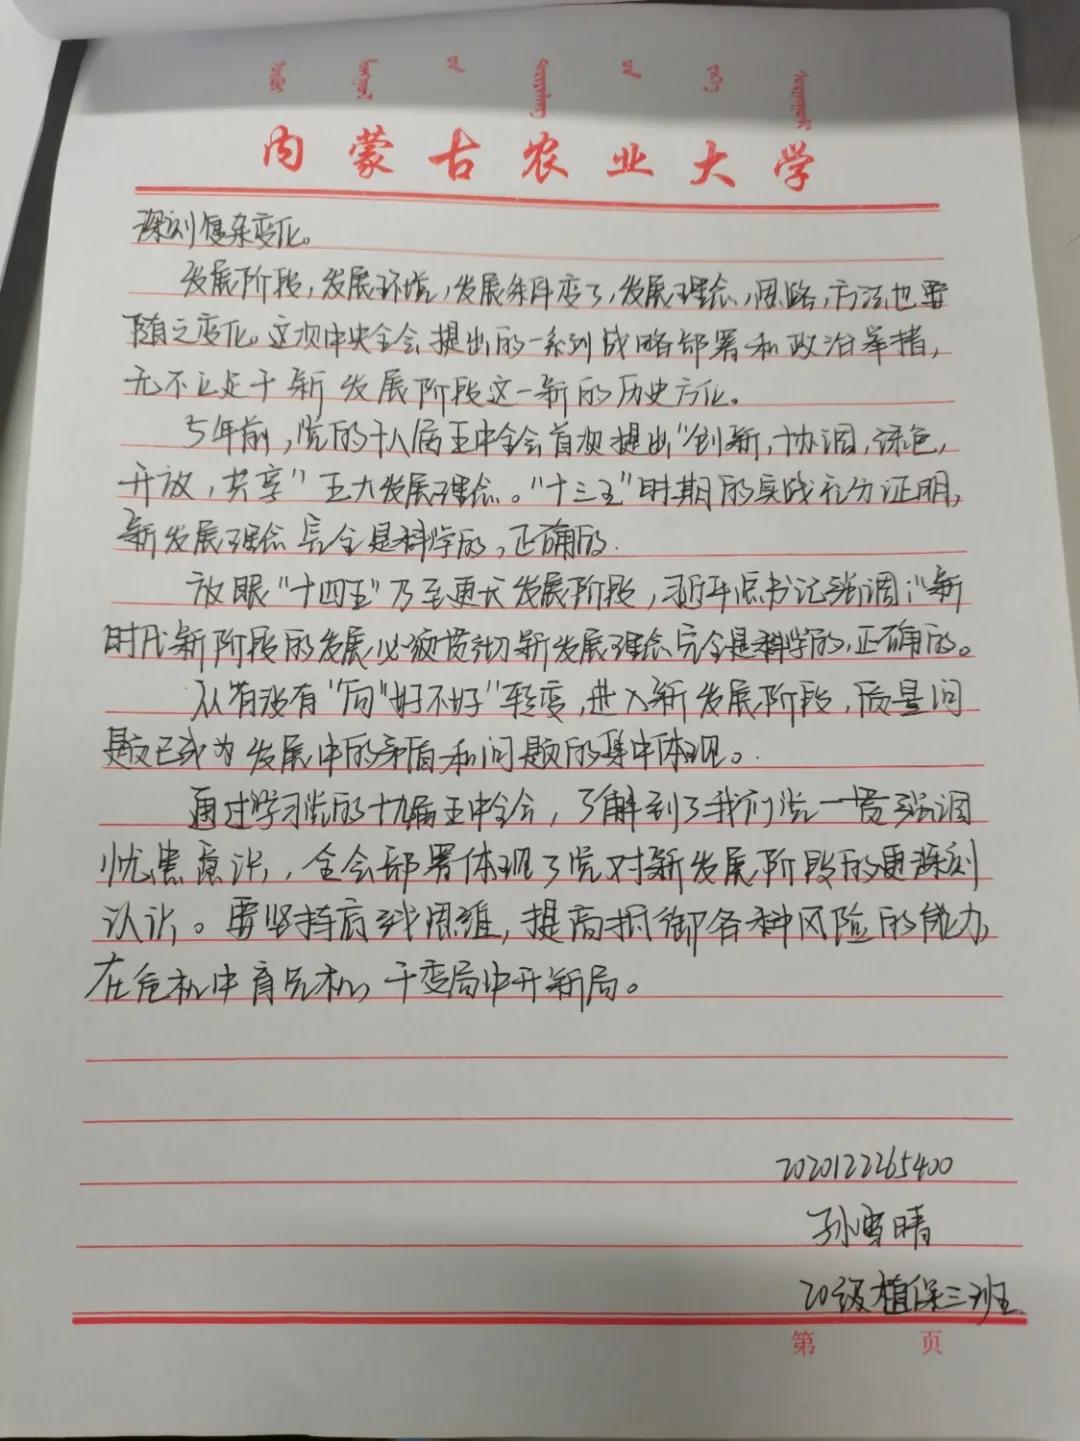 内蒙古农业大学
深刻复杂变化。
发展阶段,发展环境,发展条件变了,发展理念,思路,方法也要
随之变化。这次中央全会提出的一系列战略部署和政治举措,
无不立足于新发展阶段这一新的历史方位。
5年前,党的十八届五中全会首次提出"创新,协调,绿色,
开放,共享"五大发展理念。"十三五"时期的实践充分证明,
新发展理念完全是科学的,正确的.
放眼"十四五"乃至更长发展阶段,习近平总书记强调:"新
时代新阶段的发展必须贯彻新发展理念完全是科学的,正确的。
从"有没有"向"好不好"转变,进入新发展阶段,质量问
题已成为发展中的矛盾和问题的集中体现。
通过学习党的十九届五中全会,了解到了我们党一贯强调
忧患意识,全会部署体现了党对新发展阶段的更深刻
认识。要坚持底线思维,提高抵御各种风险的能力,
在危机中育先机,于变局中开新局。
2020122265400
孙雪晴
20级植保三班
第 页